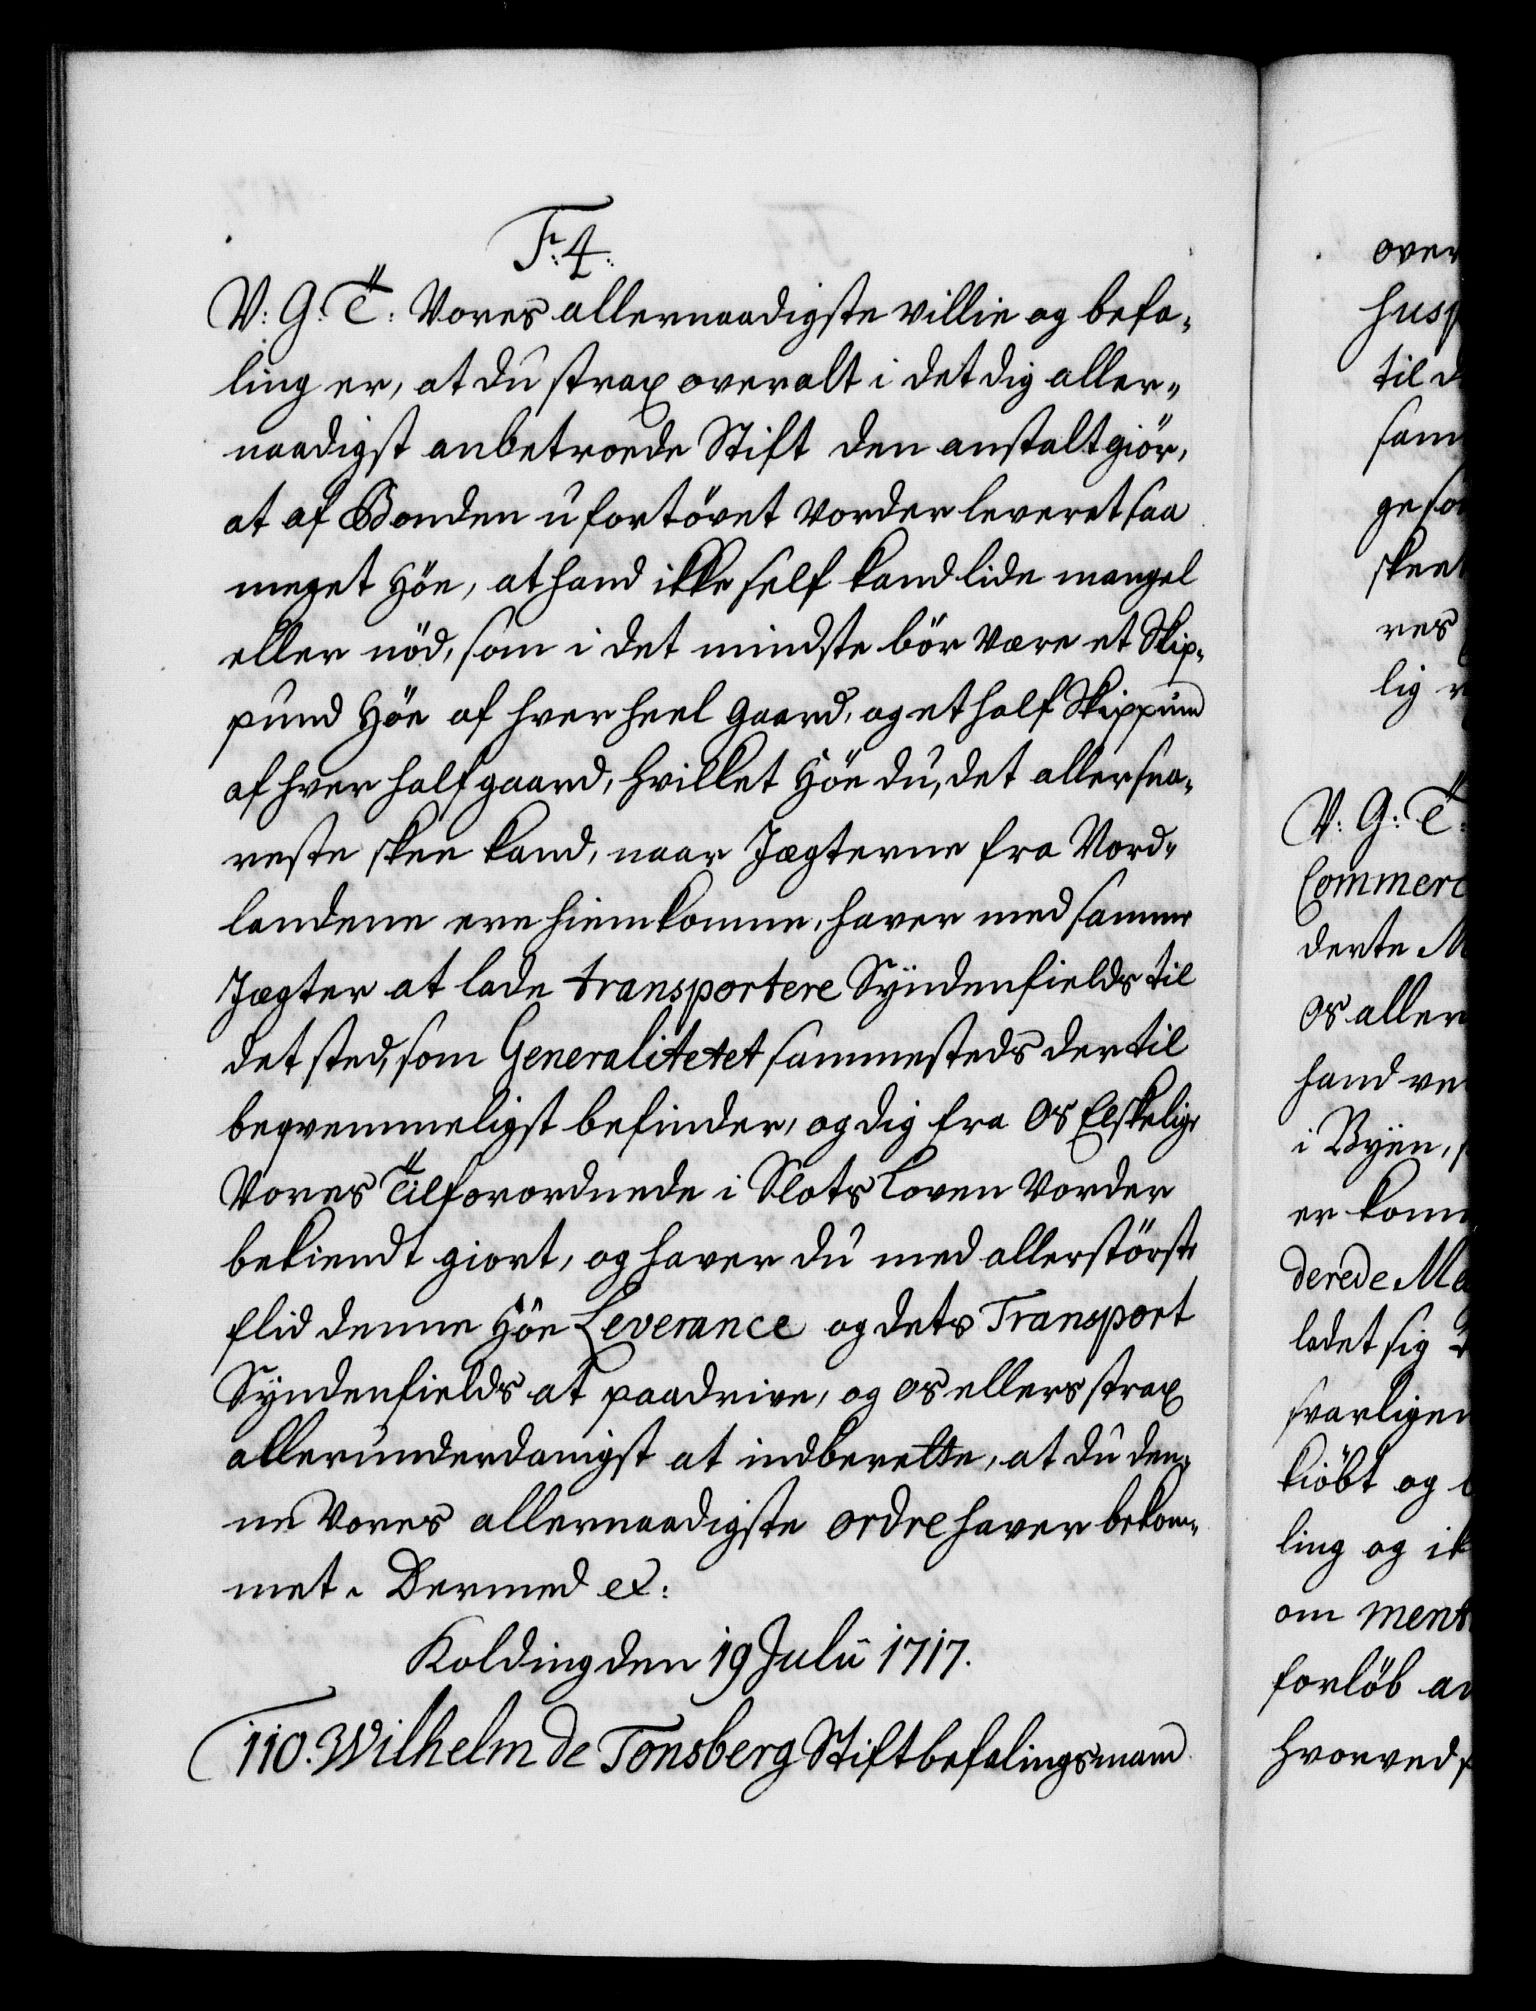 F: 4.
V: G: T: Vores allernaadigste villie og befa-
ling er, at du strax overalt i det dig aller-
naadigst anbetroede Stift den anstalt giör,
at af Bonden ufortövet vorder leveret saa
meget Höe, at hand ikke self kand lide mangel
eller nöd, som i det mindste bör være et Skip-
pund Höe af hver heel gaard, og et half Skippund
af hver half gaard, hvilket Höe du, det allersna-
reste skee kand, naar Jægterne fra Nord-
landene ere hiemkomne, haver med samme
Jægter at lade transportere Syndenfields til
det sted, som Generalitetet sammesteds dertil
beqvemmeligst befinder, og dig fra Os Elskelige
Vores Tilforordnede i Slots Loven vorder
bekiendt giort, og haver du med allerstörste
flid denne Höe Leverance og dets Transport
Syndenfields at paadrive, og os ellers strax
allerunderdanigst at indberette, at du den-
ne Vores allernaadigste ordre haver bekom-
met. Dermed ex:
Kolding den 19 Julii 1717.
110. Wilhelm de Tonsberg Stiftbefalingsmand
over
til d
sam
ge so
skee
res
lig
V: G: T:
Commerc
derte M
Os aller
hand ve
i Byen,
er kom
derede Me
ladet sig
svarligen
kiöbt og
ling og ik
om ment
forlöb
hvorved